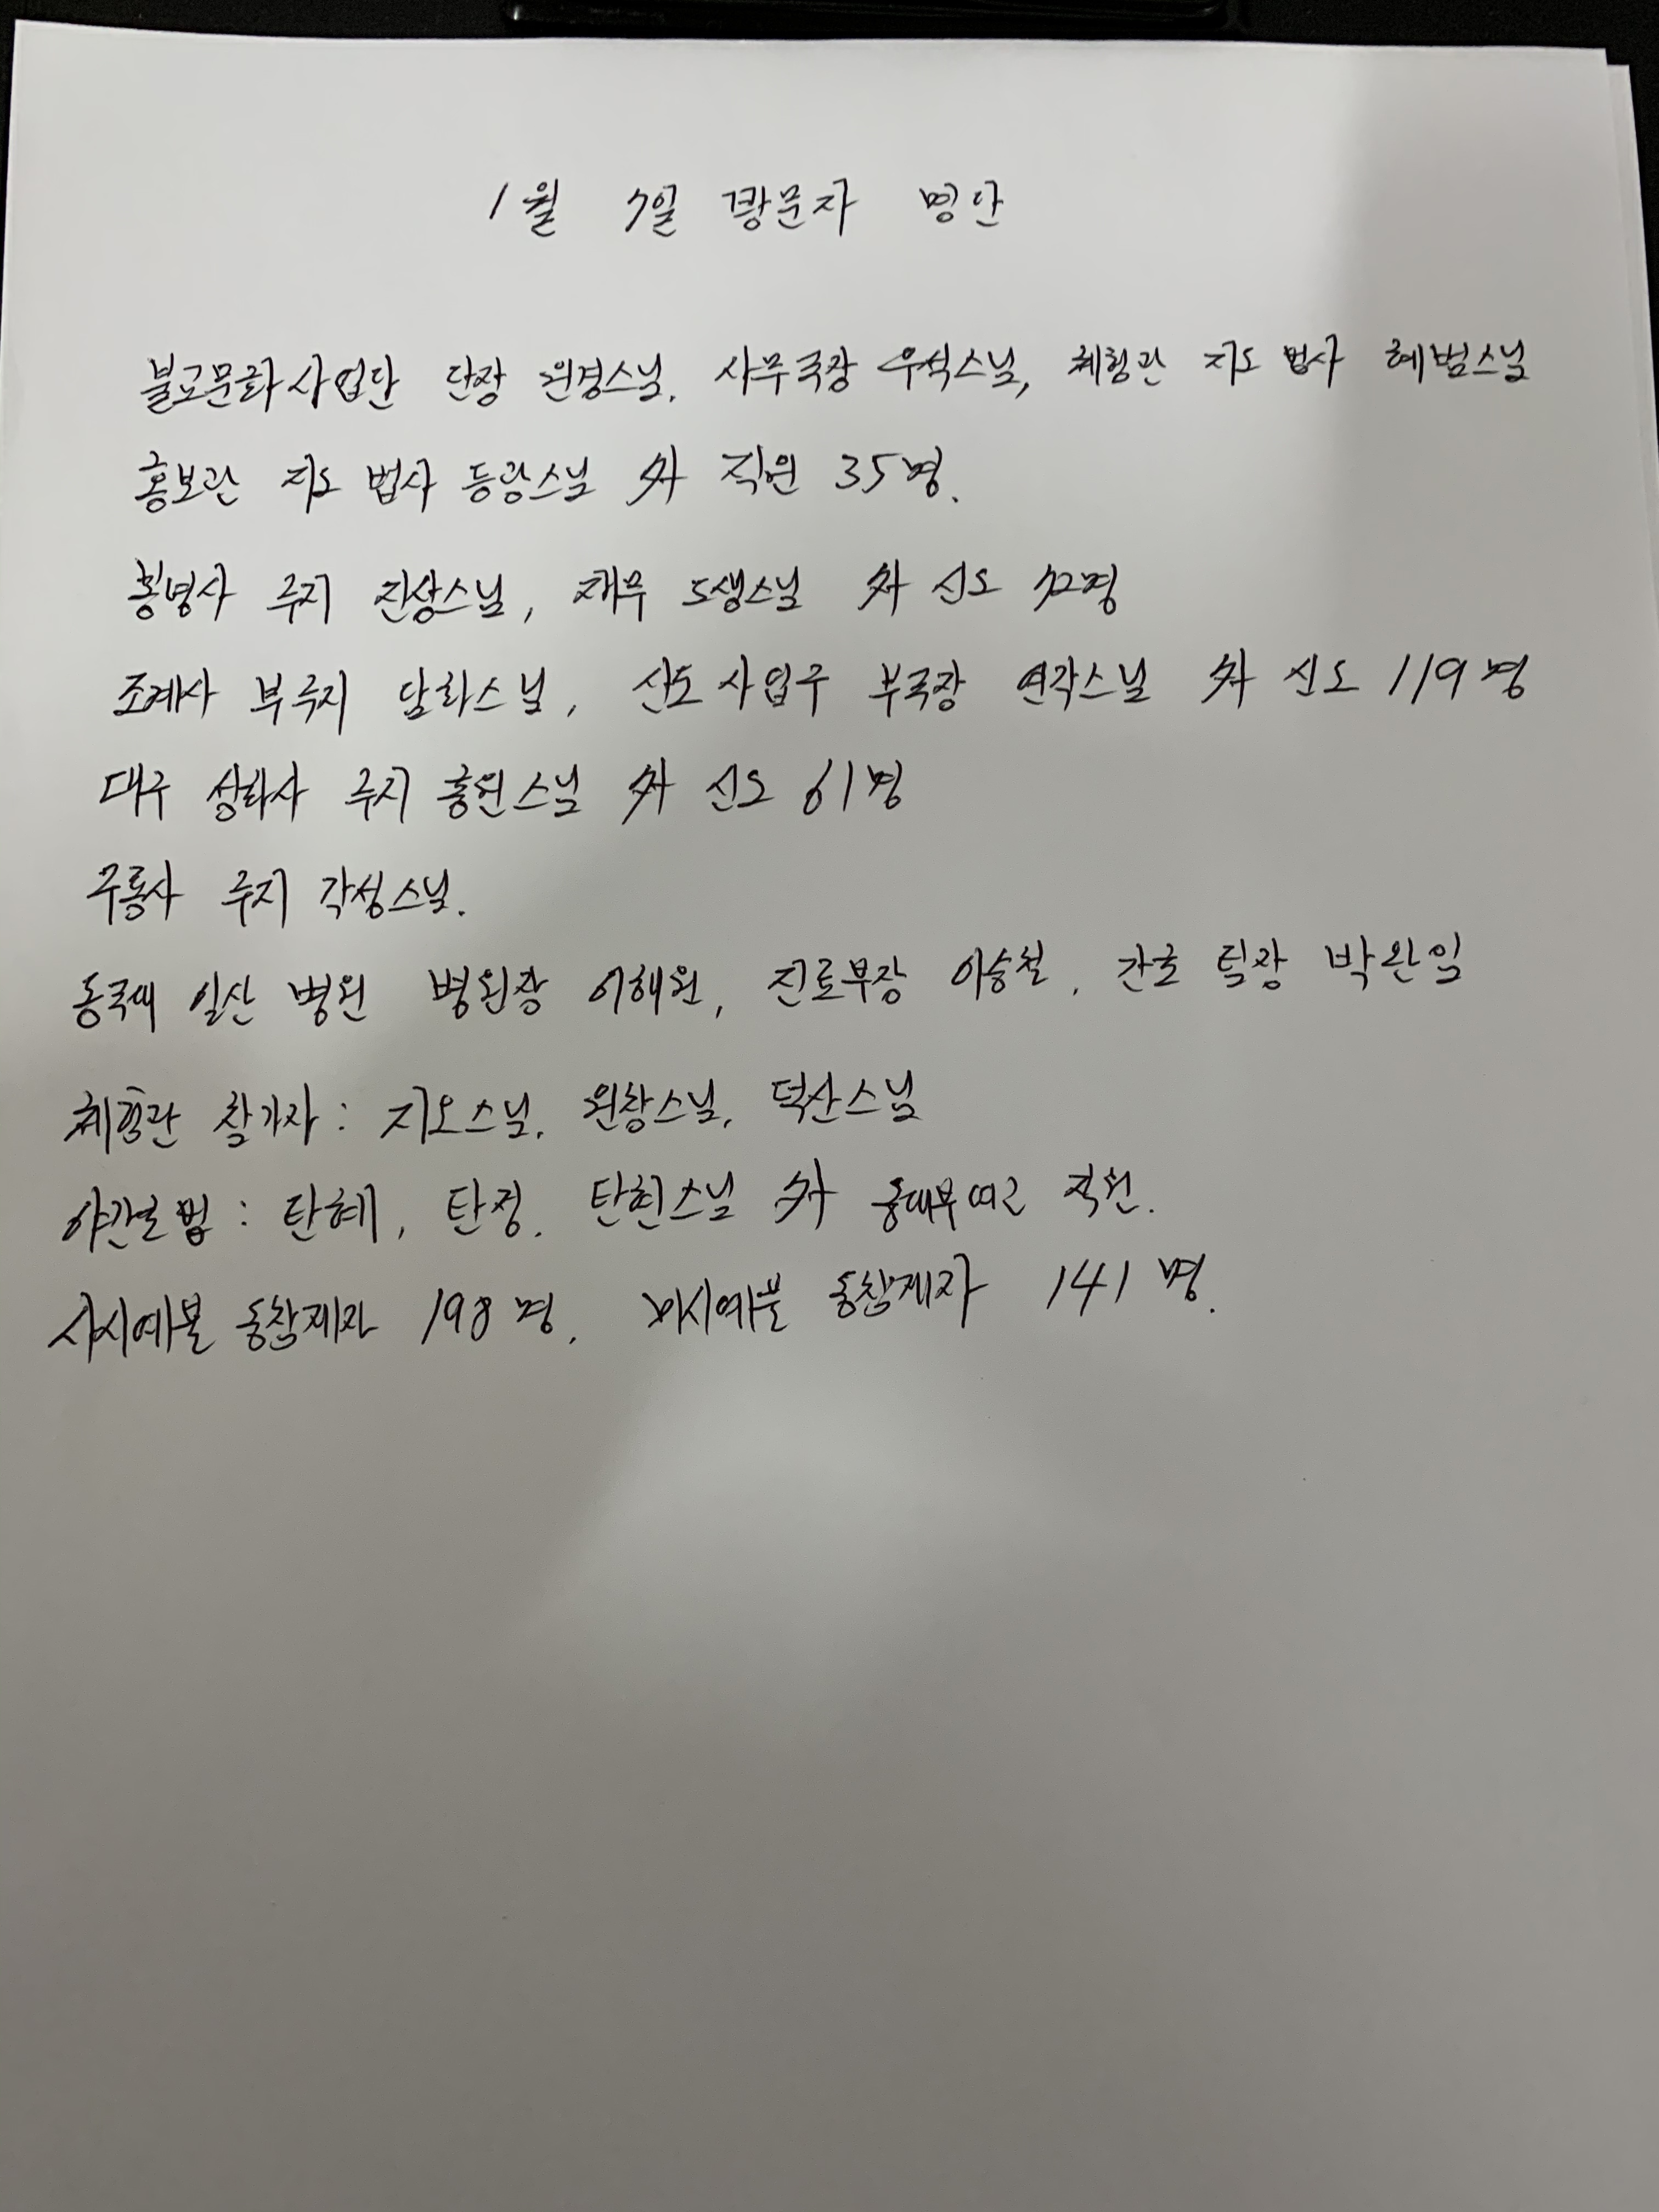 1월 7일 방문자 명단
불교문화사업단 단장 원경스님, 사무국장 우석스님, 체험관 지도 법사 혜범스님
홍보관 지도 법사 등광스님 外 직원 35명.
주지 진상스님, 재무 도생스님 外 신도 72명
조계사 부주지 담화스님, 신도사업국 부국장 연각스님 外 신도 119명
대구 주지 홍연스님 外 신도 61명
구룡사 주지 각성스님.
동국대 일산 병원 병원장 이해원, 진료부장 이승철, 간호 팀장 박완임
체험관 참가자 : 지오스님, 원창스님, 덕산스님
야간 : 탄혜, 탄정, 탄현스님 外 직원.
사시예불 동참제자 198명, 동참제자 141명.